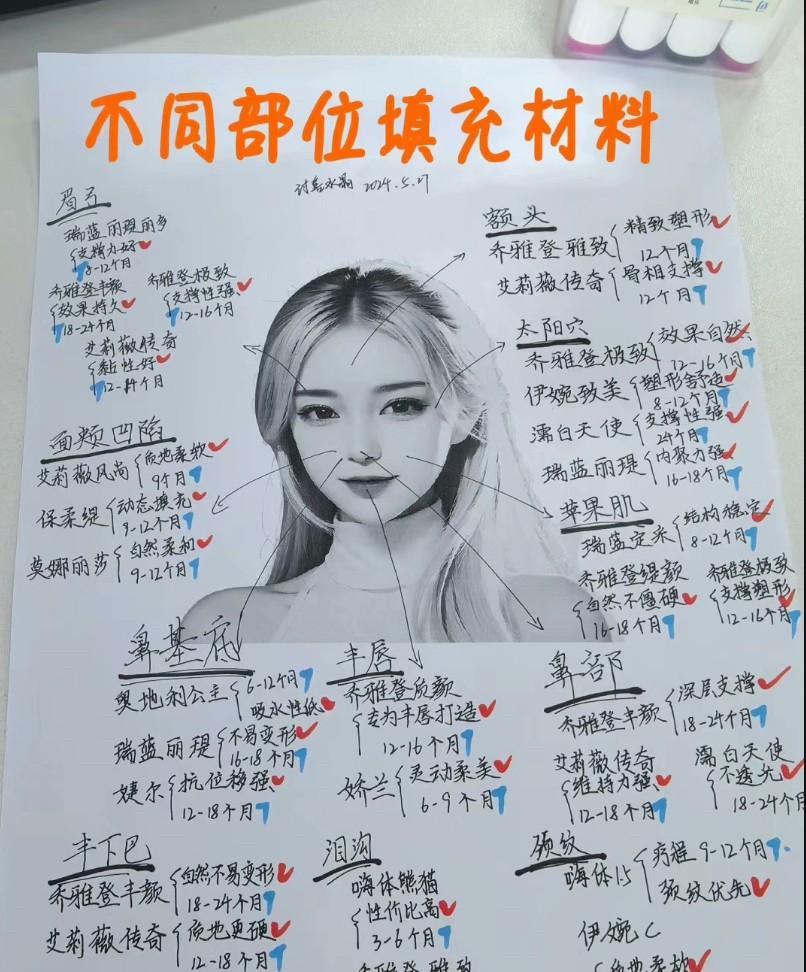 不同部位填充材料
2024.5.27
眉弓
瑞蓝丽瑅丽多
支撑力好
8-12个月
乔雅登丰颜
效果持久
18-24个月
乔雅登极致
支撑性强
12-16个月
艾莉薇传奇
黏性好
12-14个月
额头
乔雅登雅致
精致塑形
12个月
艾莉薇传奇
骨相支撑
12个月
太阳穴
乔雅登极致
效果自然
12-16个月
伊婉致美
塑形舒适
8-12个月
濡白天使
支撑性强
24个月
瑞蓝丽瑅
内聚力强
16-18个月
面颊凹陷
艾莉薇风尚
质地柔软
9个月
保柔缇
动态填充
9-12个月
莫娜丽莎
自然柔和
9-12个月
苹果肌
瑞蓝定采
结构稳定
8-12个月
乔雅登缇颜
自然不僵硬
16-18个月
乔雅登极致
支撑塑形
12-16个月
鼻基底
奥地利公主
6-12个月
吸水性低
瑞蓝丽瑅
不易变形
16-18个月
婕尔
抗位移强
12-18个月
丰唇
乔雅登质颜
专为丰唇打造
12-16个月
娇兰
灵动柔美
6-9个月
鼻部
乔雅登丰颜
深层支撑
18-24个月
艾莉薇传奇
维持力强
12-18个月
濡白天使
不透光
18-24个月
丰下巴
乔雅登丰颜
自然不易变形
18-24个月
艾莉薇传奇
质地更硬
12-18个月
泪沟
嗨体熊猫
性价比高
3-6个月
乔雅登雅致
颈纹
嗨体1.5
疗程9-12个月
颈纹优先
伊婉C
质地柔软